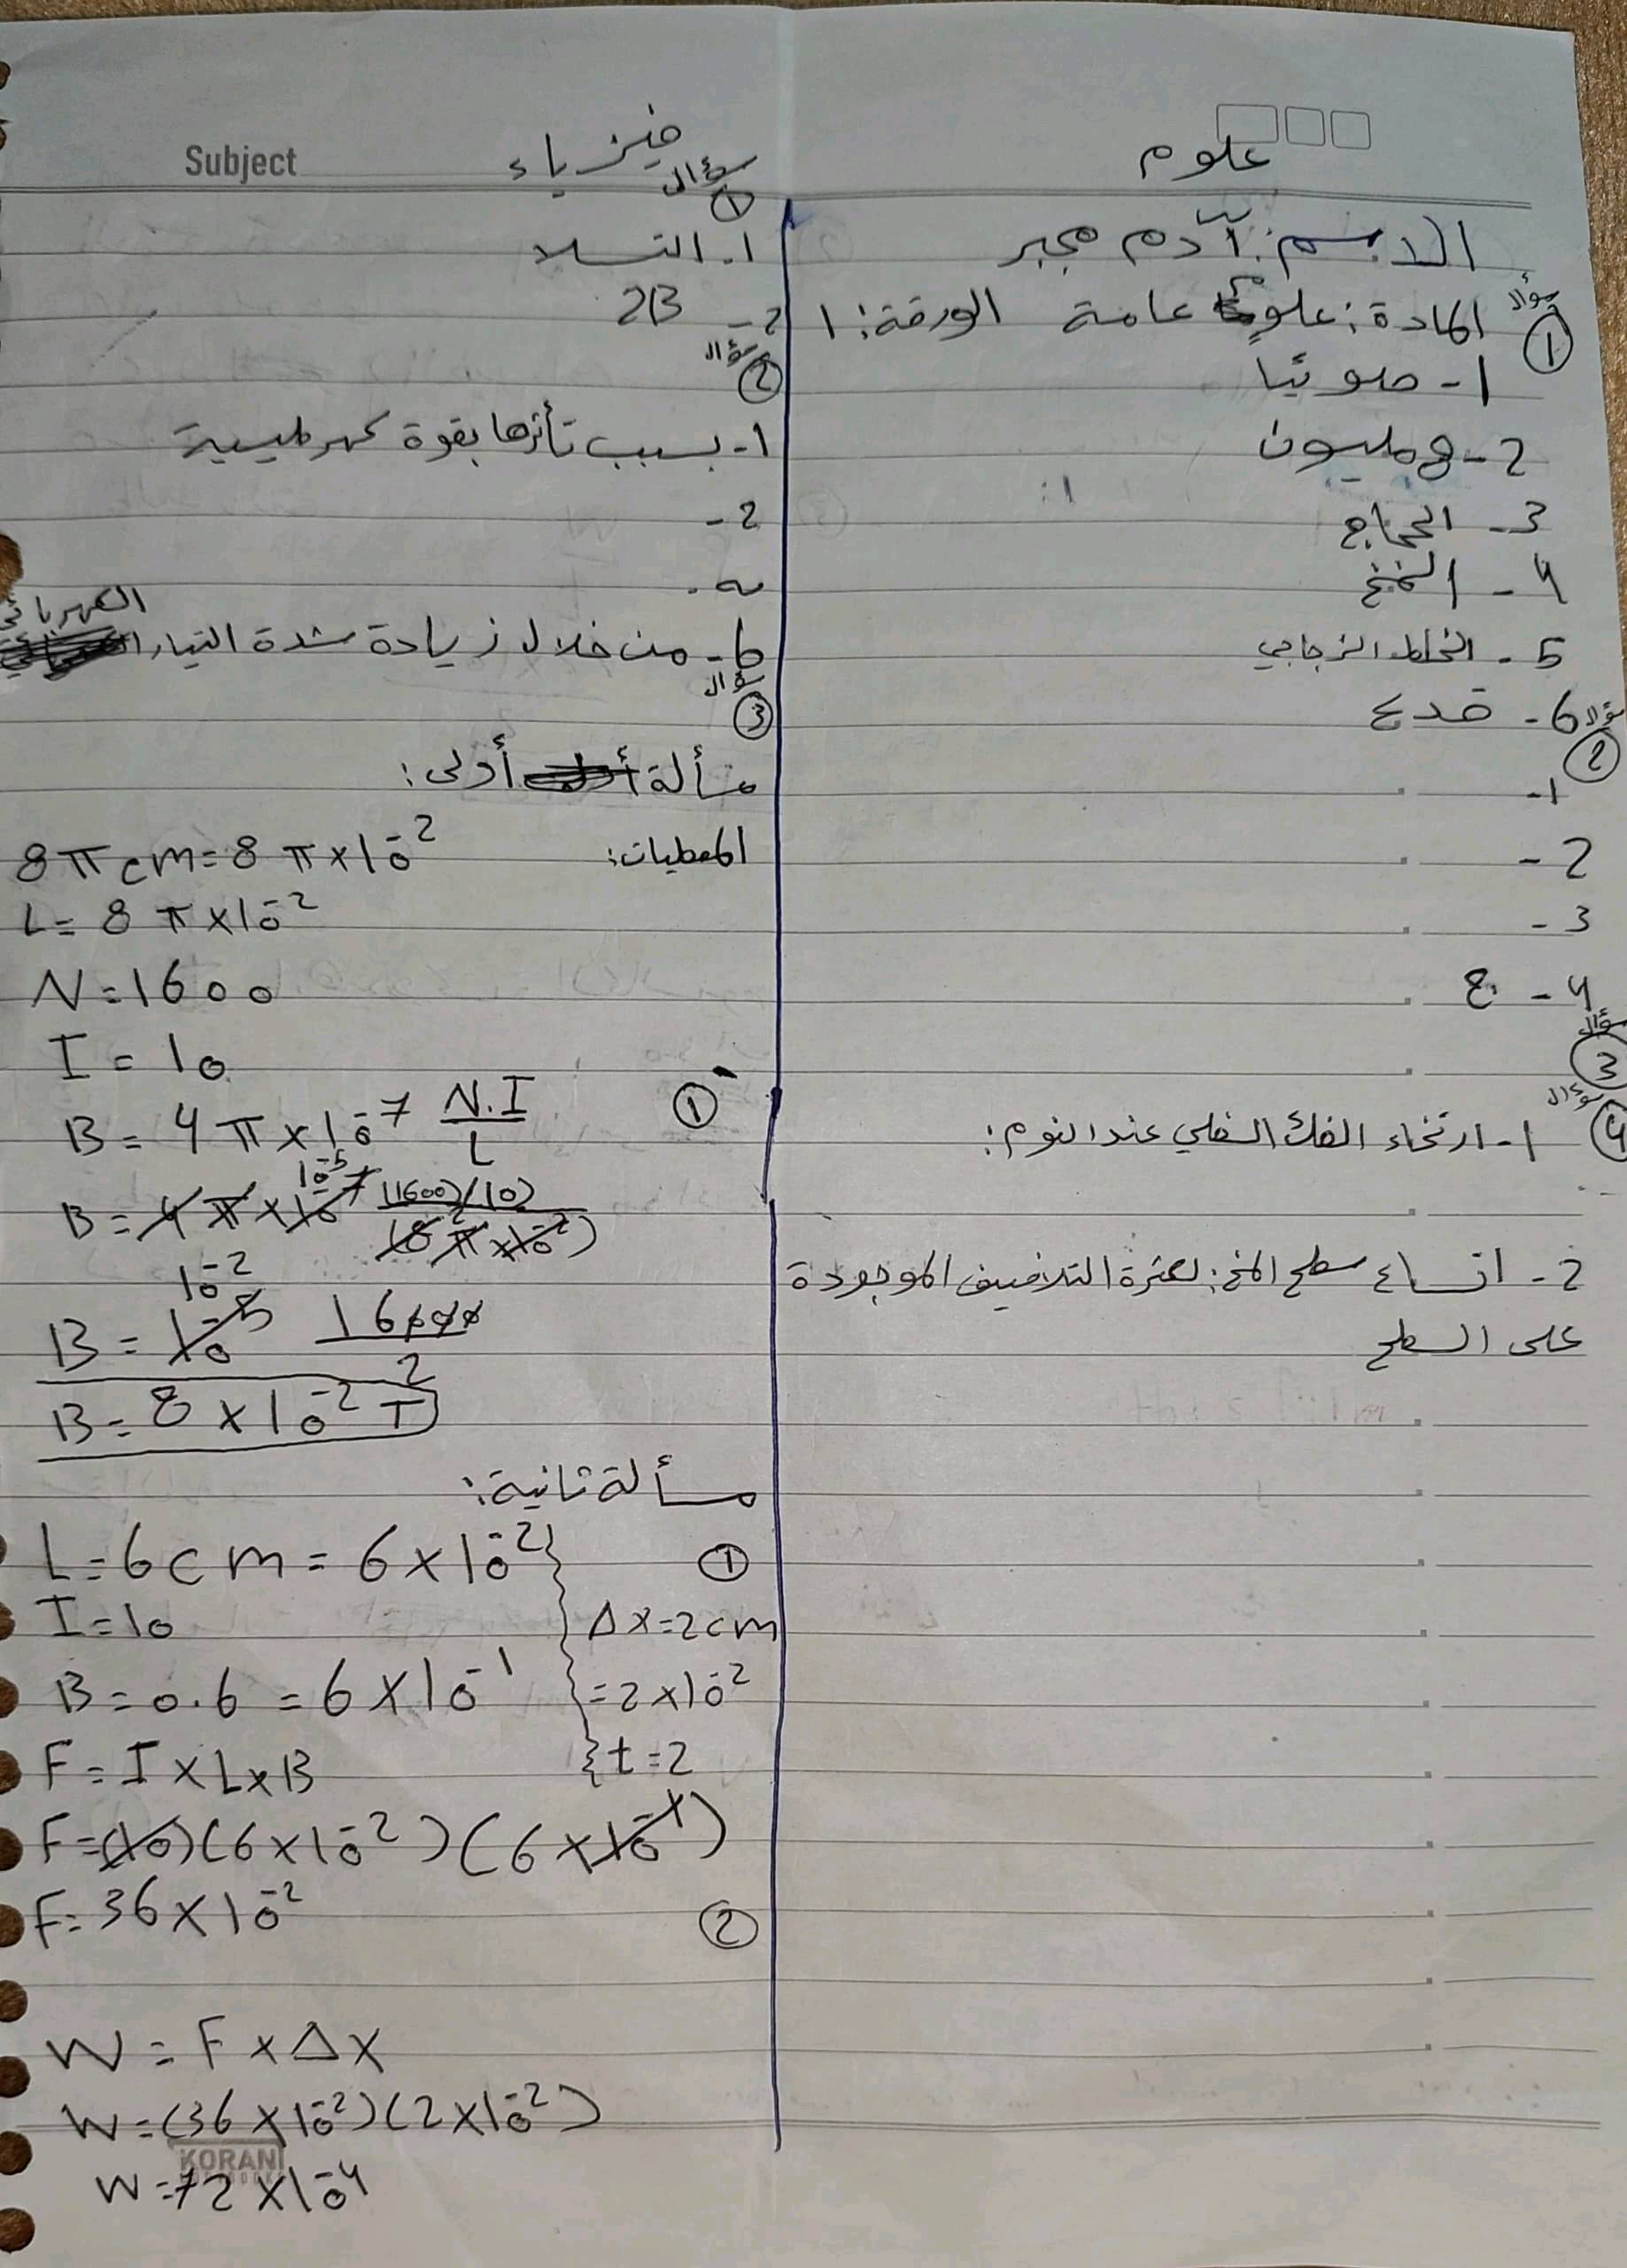 علوم
الاسم: آدم مجبر
سؤال
①
المادة: علوم عامة الورقة: ١
1- ضوئيًا
2- 9 مليون
3- الحجاج
4- المخ
5- الخلط الزجاجي
6- قدع
سؤال
②
1-
2-
3-
4- ج
سؤال
③
سؤال
④
1- ارتخاء الفك السفلي عند النوم:
2- اتساع سطح المخ: لكثرة التلافيف الموجودة
على السطح
Subject
فيزياء
سؤال
①
1. التسلا
2- 2B
سؤال
②
1- بسبب تأثرها بقوة كهرطيسية
2-
a.
b- من خلال زيادة شدة التيار الكهربائي
سؤال
③
مسألة أولى:
المعطيات:
8πcm = 8π×10⁻²
L = 8π×10⁻²
N = 1600
I = 10
①
B = 4π×10⁻⁷ N.I/L
B = 4π×10⁻⁷ (1600)(10)/(8π×10⁻²)
10⁻⁵ 2
B = 10⁻⁵ 16000/2
10⁻²
B = 8×10⁻² T
مسألة ثانية:
①
L = 6cm = 6×10⁻²
I = 10
Δx = 2cm
B = 0.6 = 6×10⁻¹
= 2×10⁻²
F = I×L×B
t = 2
F = (10)(6×10⁻²)(6×10⁻¹)
F = 36×10⁻²
②
W = F×Δx
W = (36×10⁻²)(2×10⁻²)
KORANI
W = 72×10⁻⁴